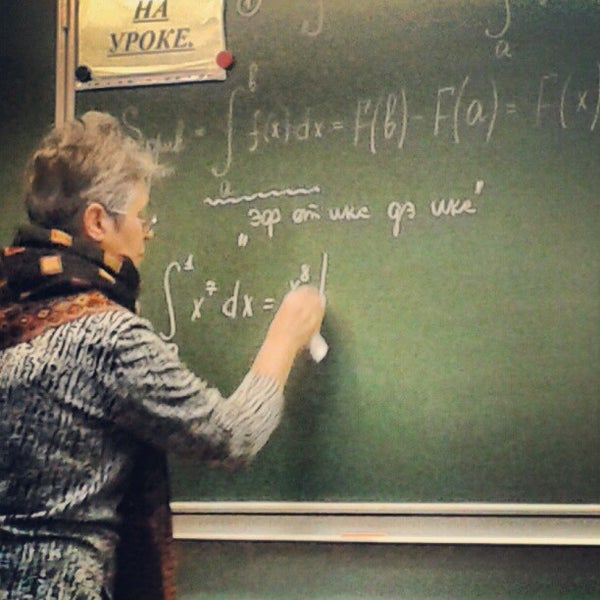 НА
УРОКЕ.
①
∫ ∫ₐ
S = ∫ₐᵇ f(x) dx = F(b) - F(a) = F(x)
"эф от икс дэ икс"
∫¹ x⁷ dx = x⁸ |